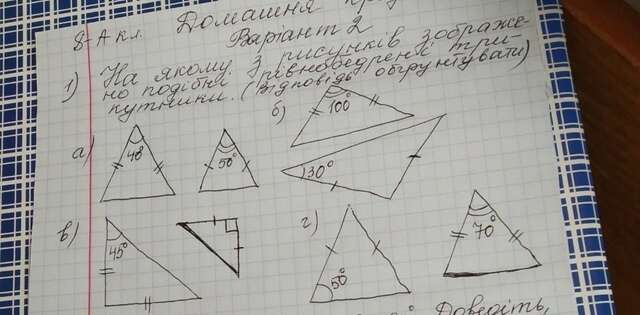 8-А кл. Домашня
Варіант 2
1) На якому з рисунків зображе-
но подібні рівнобедрені три-
кутники. (Відповідь обґрунтувати)
а) 40° 50°
б) 100° 30°
в) 45°
г) 50° 70°
Доведіть,